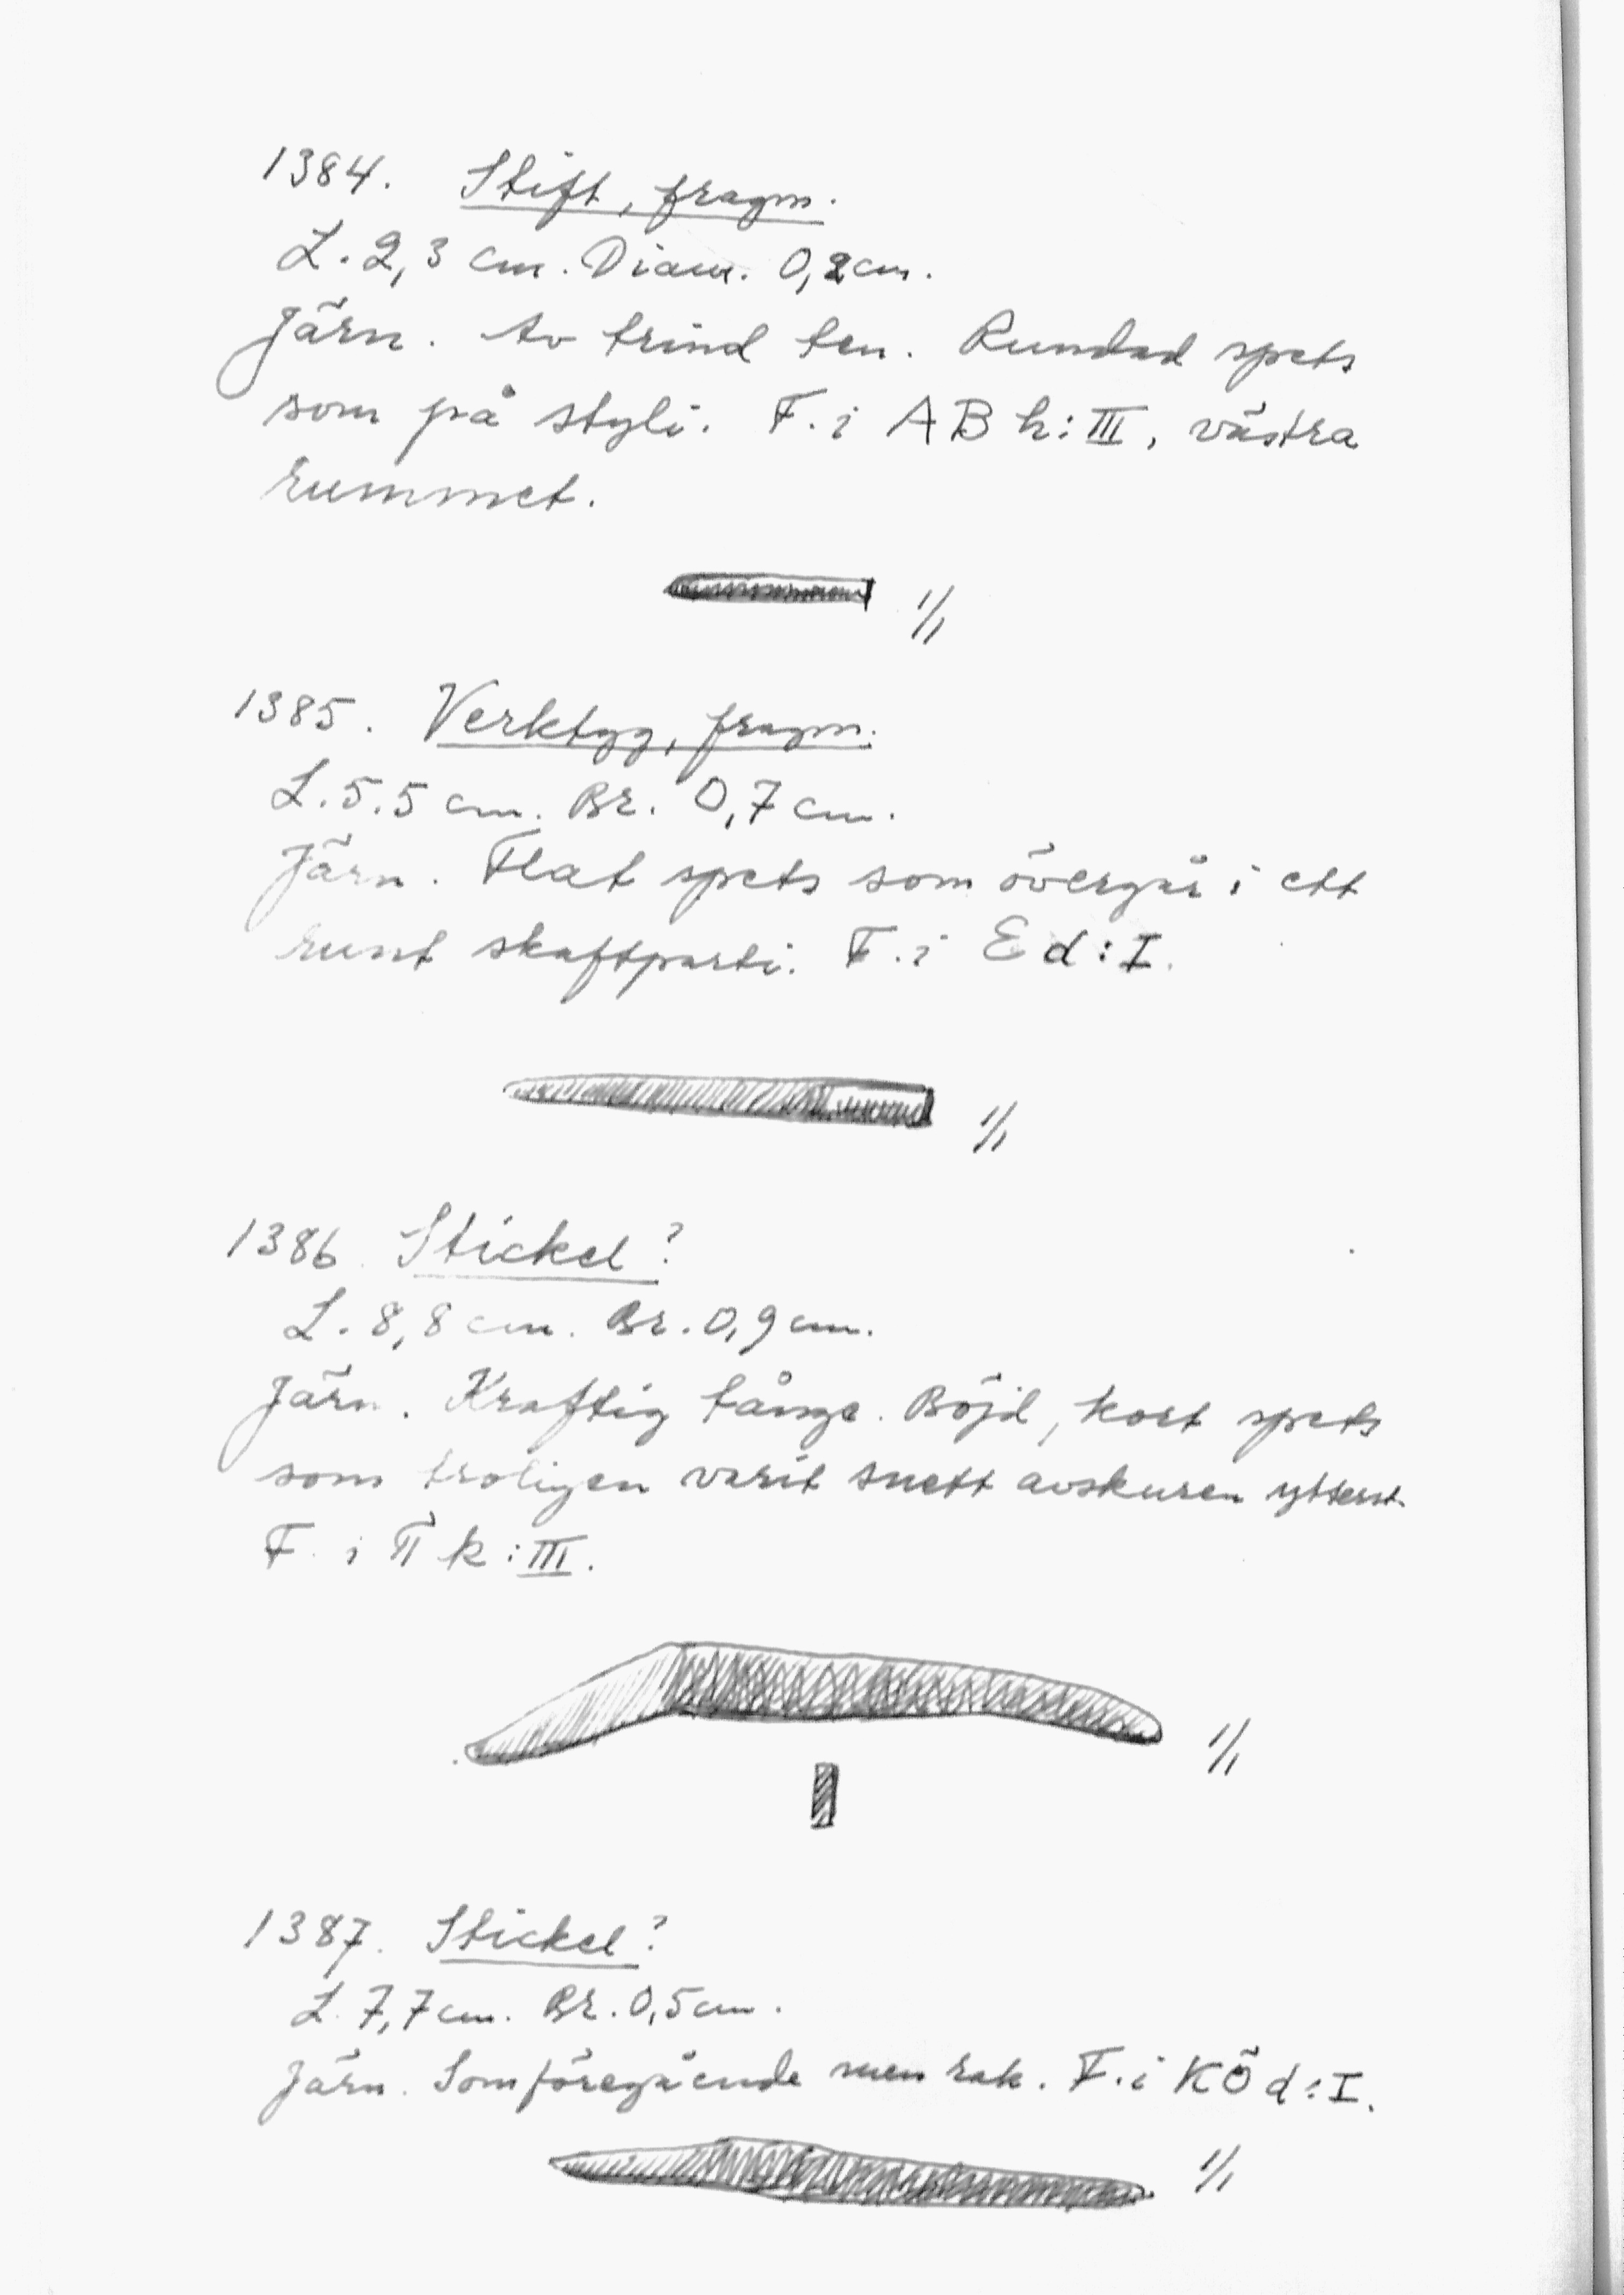 1384. Stift, fragm.
L. 2,3 cm. Diam. 0,2 cm.
Järn. Av trind ten. Rundad spets
som på styli. F. i A B h: III, västra
rummet.
1/1
1385. Verktyg, fragm.
L. 5.5 cm. Br. 0,7 cm.
Järn. Flat spets som övergår i ett
runt skaftparti. F. i E d: I.
1/1
1386. Stickel?
L. 8,8 cm. Br. 0,9 cm.
Järn. Kraftig tånge. Böjd, kort spets
som troligen varit snett avskuren ytterst.
F. i k: III.
1/1
1387. Stickel?
L. 7,7 cm. Br. 0,5 cm.
Järn. Som föregående men rak. F. i KÖ d: I.
1/1